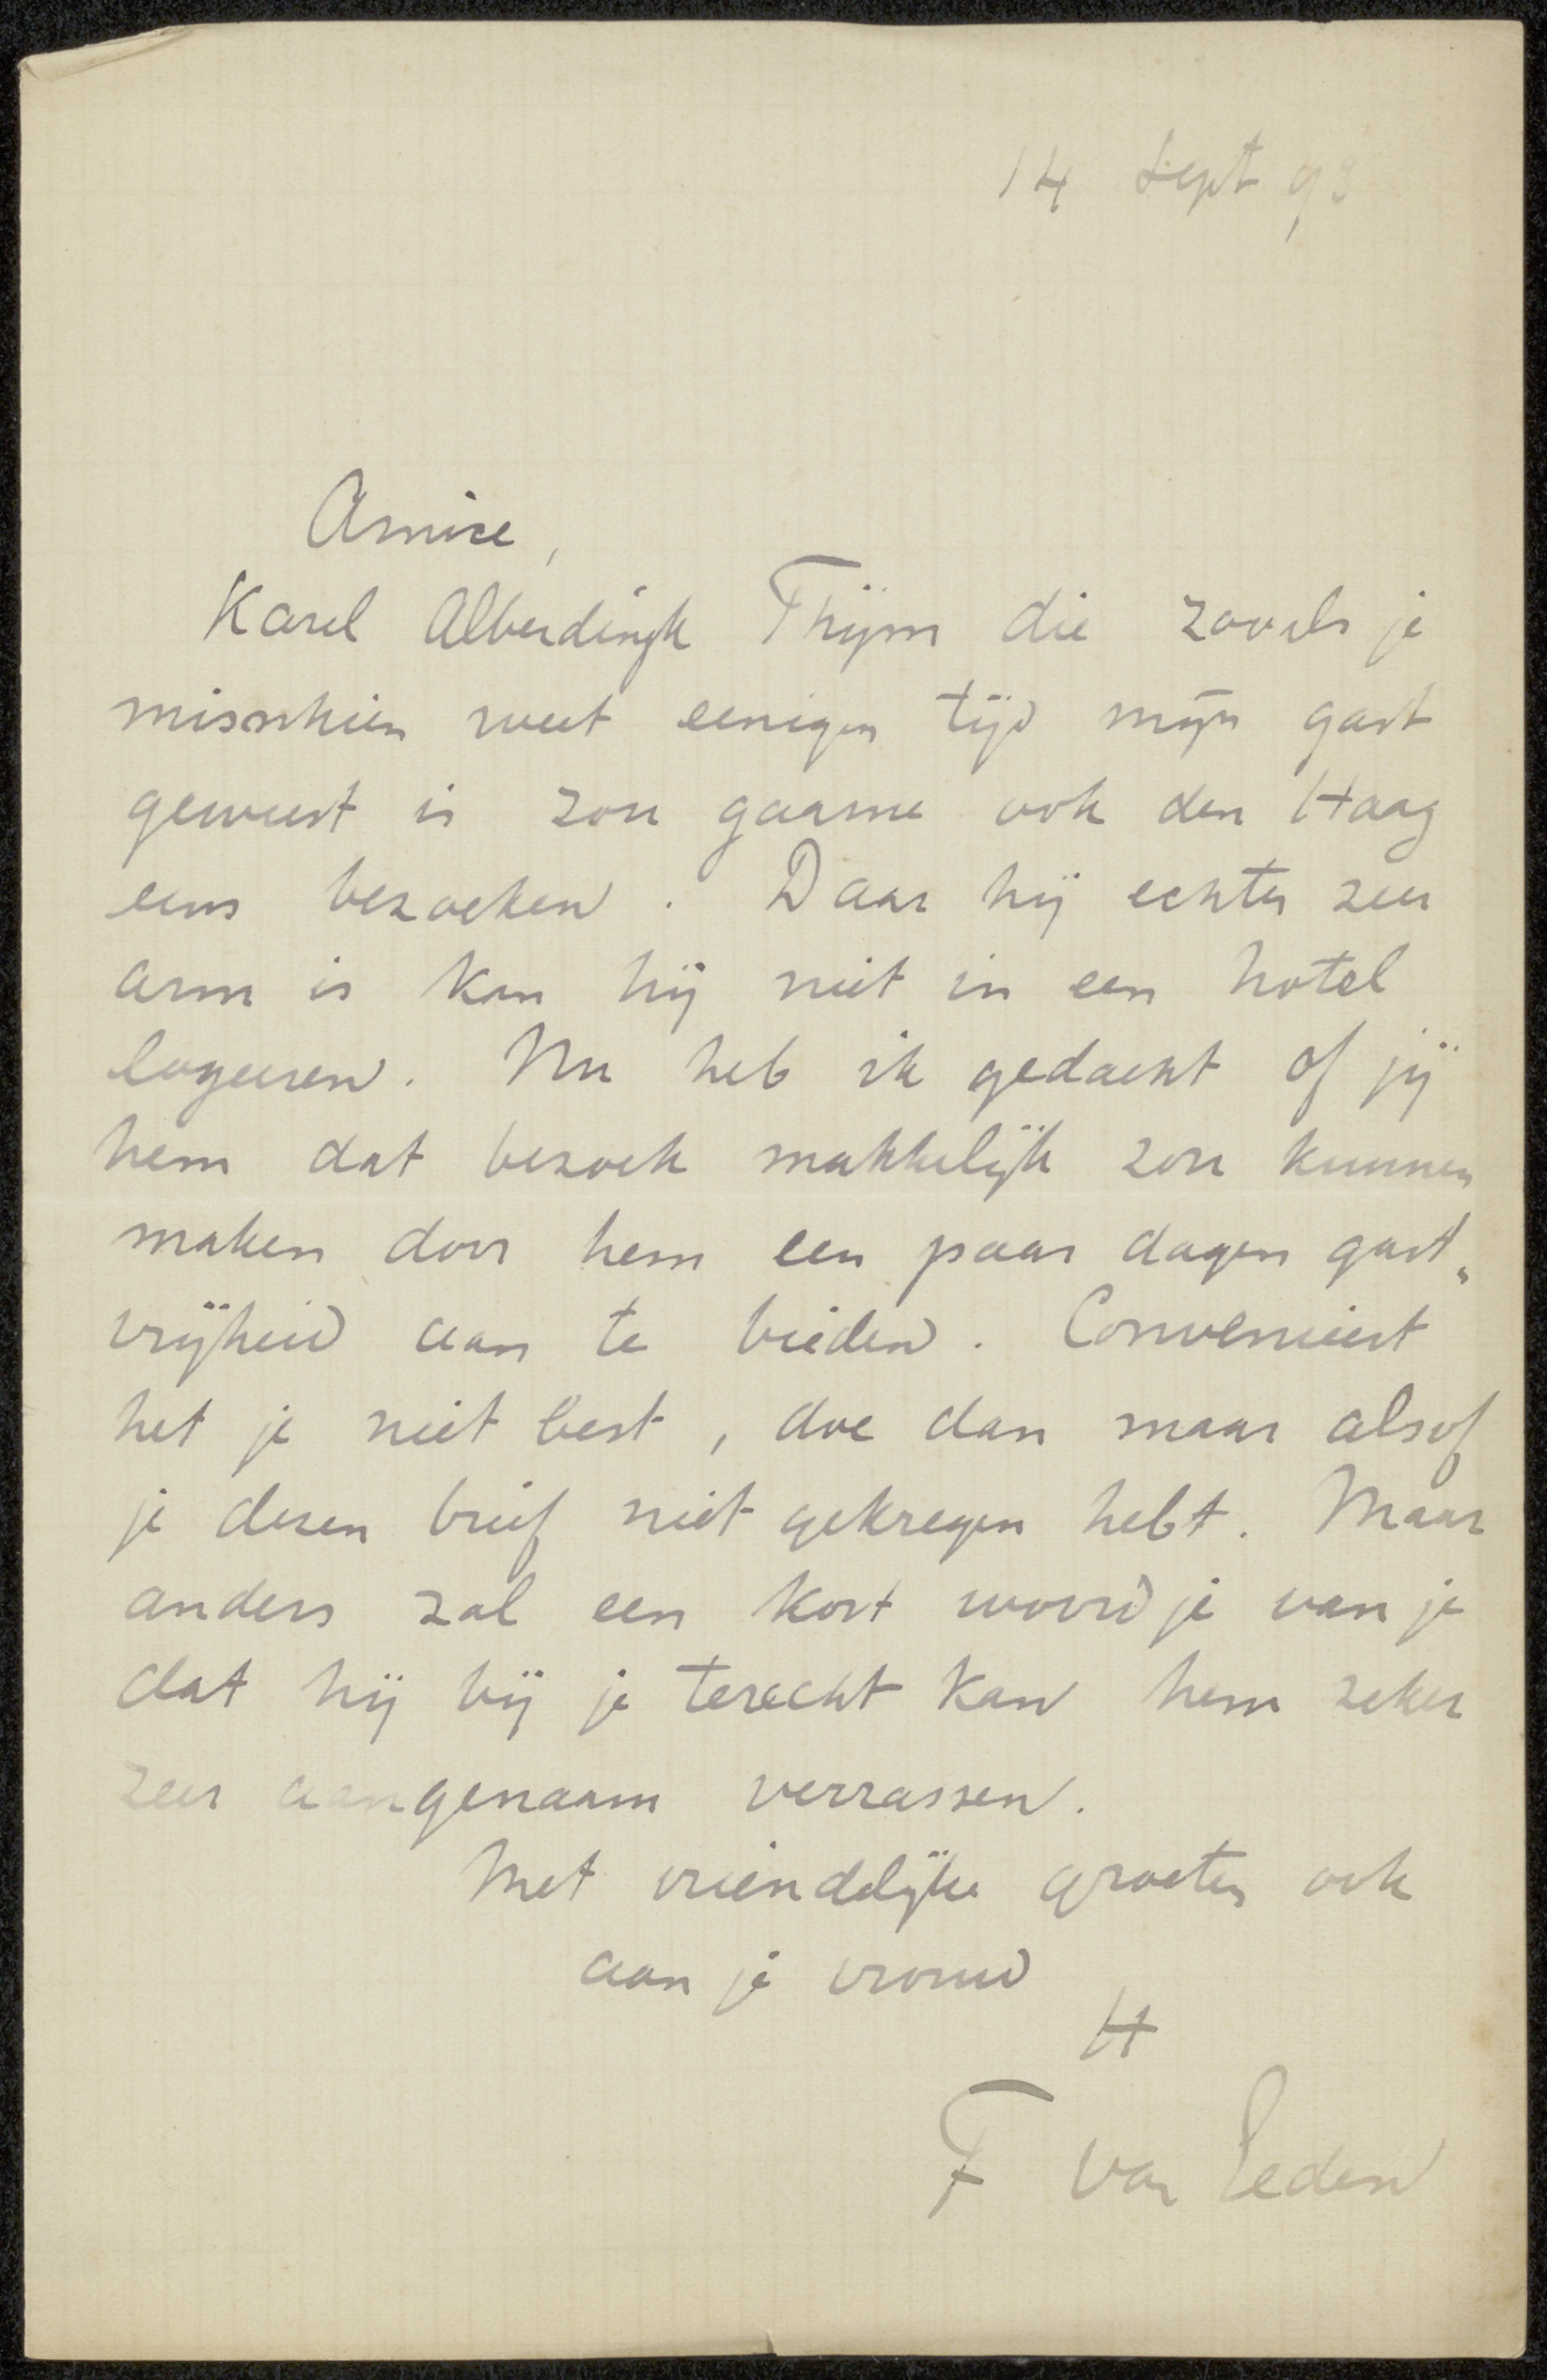 14 Sept 93
Amice,
Karel Alberdingk Thijm die zooals je
misschien weet eenigen tijd mijn gast
geweest is zou gaarne ook den Haag
eens bezoeken. Daar hij echter zeer
arm is kan hij niet in een hotel
logeeren. Nu heb ik gedacht of jij
hem dat bezoek makkelijk zou kunnen
maken door hem een paar dagen gast„
vrijheid aan te bieden. Convenieert
het je niet best, doe dan maar alsof
je dezen brief niet gekregen hebt. Maar
anders zal een kort woordje van je
dat hij bij je terecht kan hem zeker
zeer aangenaam verrassen.
Met vriendelijke groeten ook
aan je vrouw
tt
F van Eeden